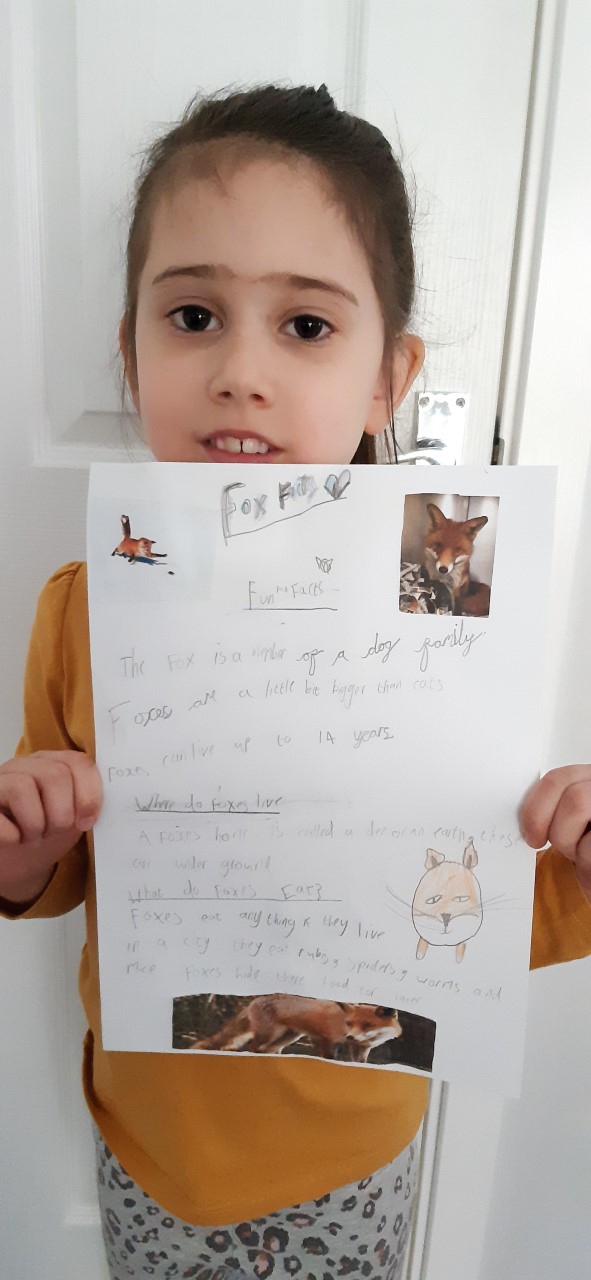 Fox Facts
Fun Facts
The Fox is a member of a dog family.
Foxes are a little bit bigger than cats
Foxes can live up to 14 years
Where do foxes live
A foxes home is called a den or an earth, these
are under ground
What do Foxes Eat?
Foxes eat any thing they live
in a city they eat rubs, spiders, worms and
mice Foxes hide there food for later